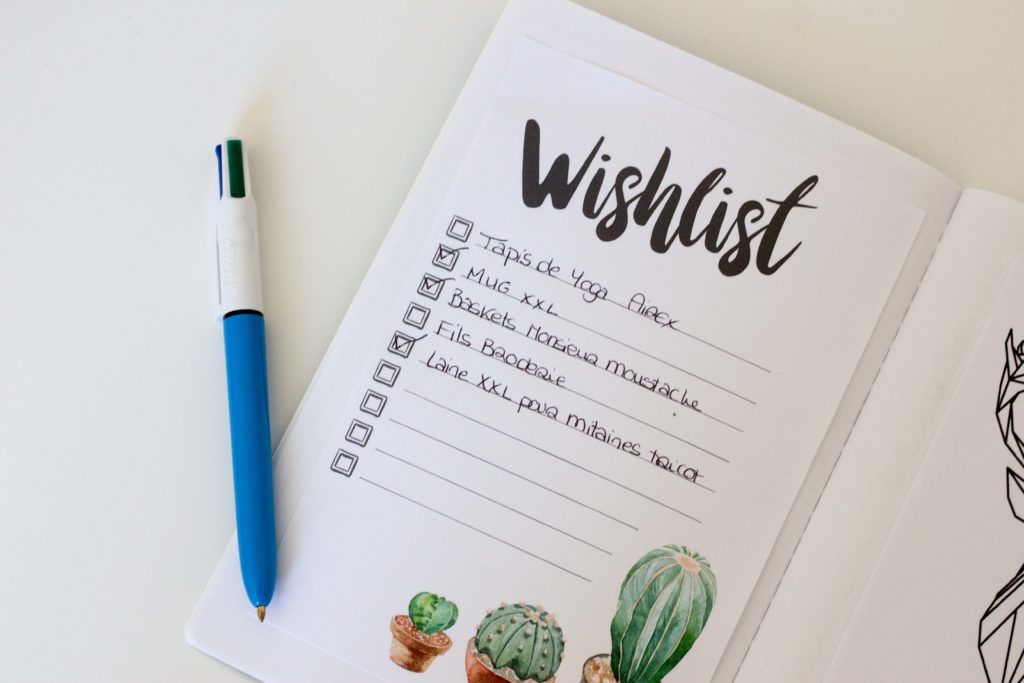 Wishlist
Tapis de Yoga Airex
Mug XXL
Baskets Monsieur moustache
Fils Broderie
Laine XXL pour mitaines tricot